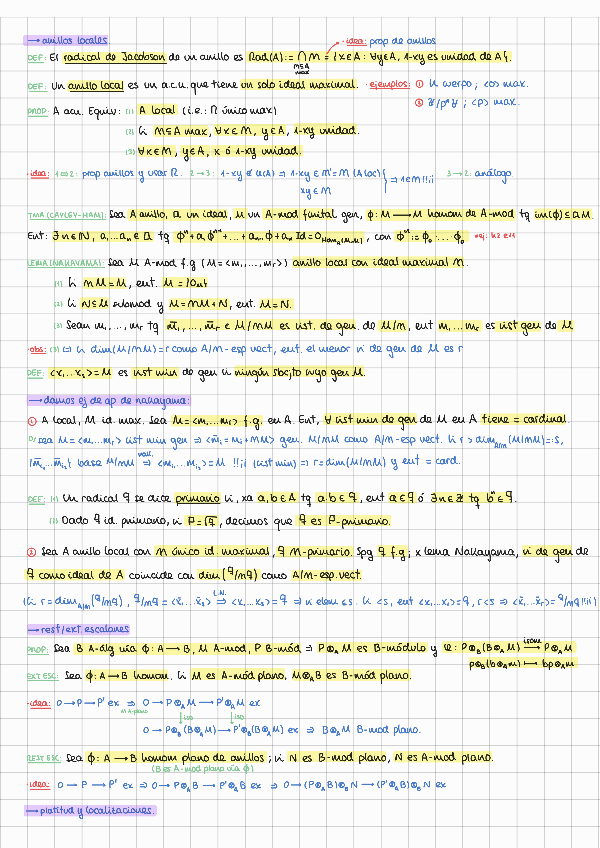 → anillos locales.
· idea: prop de anillos
DEF: El radical de Jacobson de un anillo es Rad(A) := ⋂ m = {x∈A : ∀y∈A, 1-xy es unidad de A}.
m⊆A max
DEF: Un anillo local es un a.c.u. que tiene un solo ideal maximal. · ejemplos: ① K cuerpo; <0> max.
② ℤ/pⁿℤ ; <p> max.
PROP: A acu. Equiv: (1) A local (i.e.: ∩ único max)
(2) Si m⊆A max, ∀x∈m, y∈A, 1-xy unidad.
(3) ∀x∈m, y∈A, x ó 1-xy unidad.
· idea: 1⇔2: prop anillos y usar R. 2→3: 1-xy ∉ U(A) ⇒ 1-xy ∈ m' = m (A loc) } ⇒ 1∈m !!¡¡ 3→2: análogo
xy ∈ m
TMA (CAYLEY-HAM): Sea A anillo, a un ideal, M un A-mod finital gen, ϕ: M → M homom de A-mod tq im(ϕ) ⊆ aM.
Ent: ∃n∈ℕ, a₁...aₙ ∈ a tq ϕⁿ + a₁ϕⁿ⁻¹ + ... + aₙ₋₁ϕ + aₙ Id = 0, con ϕⁿ := ϕ∘...∘ϕ
LEMA (NAKAYAMA): Sea M A-mod f.g (M = <m₁,...,mᵣ>) anillo local con ideal maximal m.
(1) Si mM = M, ent. M = {0M}
(2) Si N ⊆ M submod y M = mM + N, ent. M = N.
(3) Sean m₁,...,mᵣ tq m̄₁,...,m̄ᵣ ∈ M/mM es sist. de gen. de M/m, ent m₁...mᵣ es sist gen de M
· obs: (3) ⇒ Si dim(M/mM) = r como A/m-esp vect, ent. el menor nº de gen de M es r
DEF: <x₁...xₛ> = M es sist min de gen si ningún sbcjto suyo gen M.
→ damos ej de ap de nakayama:
① A local, M id. max. Sea M = <m₁...mᵣ> f.g. en A. Ent, ∀ sist min de gen de M en A tiene = cardinal.
D/ Sea M = <m₁...mᵣ> sist min gen ⇒ <m̄ᵢ = mᵢ + mM> gen. M/mM como A/m-esp vect. Si r > dim A/m (M/mM) =: s,
{m̄ᵢ₁...m̄ᵢₛ} base M/mM ⇒ <mᵢ₁...mᵢₛ> = M !!¡¡ (sist min) ⇒ r = dim(M/mM) y ent = card.
DEF: (1) Un radical q se dice primario si, xa a,b∈A tq a·b∈q, ent a∈q ó ∃n∈ℤ tq bⁿ∈q.
(2) Dado q id. primario, si p = √q, decimos que q es p-primario.
② Sea A anillo local con m único id. maximal, q m-primario. Spg q f.g; x lema Nakayama, nº de gen de
q como ideal de A coincide con dim(q/mq) como A/m-esp. vect.
(Si r = dim A/m (q/mq), q/mq = <x̄₁...x̄ₛ> ⇒ <x₁...xₛ> = q ⇒ nº elem ≤ s. Si <s, ent <x₁...xᵣ> = q, r<s ⇒ <x̄₁...x̄ᵣ> = q/mq !!¡¡)
→ rest/ext escalares
PROP: Sea B A-álg vía ϕ: A → B, M A-mod, P B-mód ⇒ P⊗_A M es B-módulo y φ: P⊗_B(B⊗_A M) → P⊗_A M
isom
p⊗_B(b⊗_A m) ↦ bp⊗_A m
EXT ESC: Sea ϕ: A → B homom. Si M es A-mód plano, M⊗_A B es B-mód plano.
· idea: 0 → P → P' ex ⇒ 0 → P⊗_A M → P'⊗_A M ex
M A-plano ↓ iso ↓ iso
0 → P⊗_B(B⊗_A M) → P'⊗_B(B⊗_A M) ex ⇒ B⊗_A M B-mod plano.
REST ESC: Sea ϕ: A → B homom plano de anillos; si N es B-mod plano, N es A-mod plano.
(B es A-mod plano vía ϕ)
· idea: 0 → P → P' ex ⇒ 0 → P⊗_A B → P'⊗_A B ex ⇒ 0 → (P⊗_A B)⊗_B N → (P'⊗_A B)⊗_B N ex
→ platitud y localizaciones.